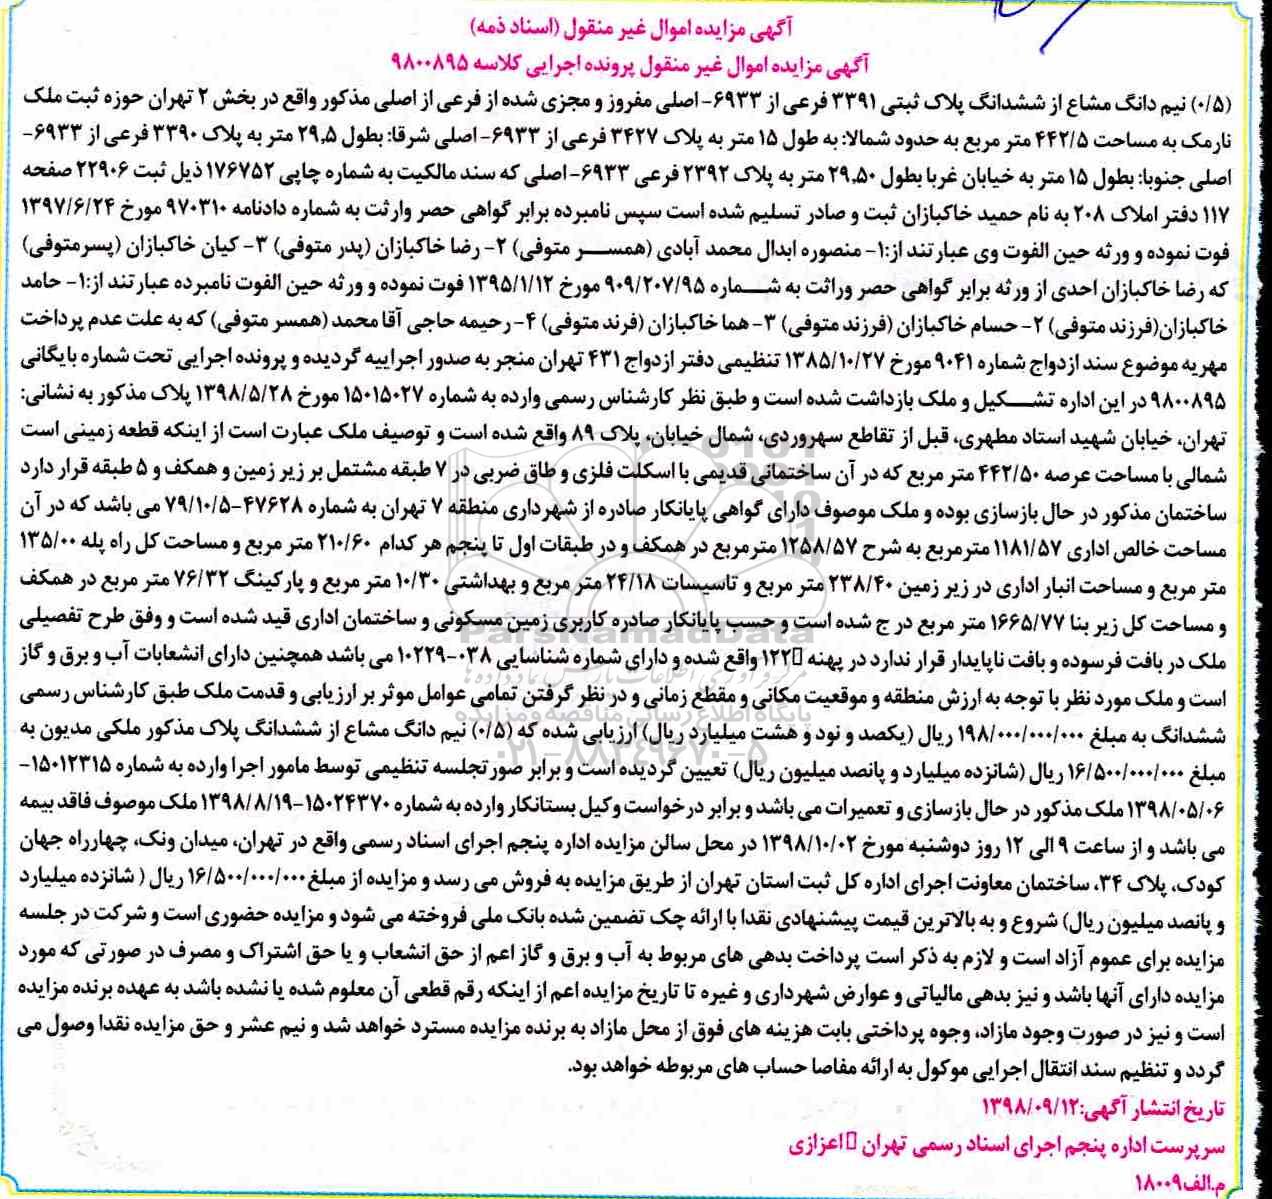 آگهی مزایده اموال غیر منقول (اسناد ذمه)
آگهی مزایده اموال غیر منقول پرونده اجرایی کلاسه ۹۸۰۰۸۹۵
(۰/۵) نیم دانگ مشاع از ششدانگ پلاک ثبتی ۳۳۹۱ فرعی از ۶۹۳۳- اصلی مفروز و مجزی شده از فرعی از اصلی مذکور واقع در بخش ۲ تهران حوزه ثبت ملک
نارمک به مساحت ۴۴۲/۵ متر مربع به حدود شمالا: به طول ۱۵ متر به پلاک ۳۴۲۷ فرعی از ۶۹۳۳- اصلی شرقا: بطول ۲۹,۵ متر به پلاک ۳۳۹۰ فرعی از ۶۹۳۳-
اصلی جنوبا: بطول ۱۵ متر به خیابان غربا بطول ۲۹,۵۰ متر به پلاک ۲۳۹۲ فرعی ۶۹۳۳-اصلی که سند مالکیت به شماره چاپی ۱۷۶۷۵۲ ذیل ثبت ۲۲۹۰۶ صفحه
۱۱۷ دفتر املاک ۲۰۸ به نام حمید خاکبازان ثبت و صادر تسلیم شده است سپس نامبرده برابر گواهی حصر وارثت به شماره دادنامه ۹۷۰۳۱۰ مورخ ۱۳۹۷/۶/۲۴
فوت نموده و ورثه حین الفوت وی عبارتند از:۱- منصوره ابدال محمد آبادی (همسر متوفی) ۲- رضا خاکبازان (پدر متوفی) ۳- کیان خاکبازان (پسرمتوفی)
که رضا خاکبازان احدی از ورثه برابر گواهی حصر وراثت به شماره ۹۰۹/۲۰۷/۹۵ مورخ ۱۳۹۵/۱/۱۲ فوت نموده و ورثه حین الفوت نامبرده عبارتند از:۱- حامد
خاکبازان(فرزند متوفی) ۲- حسام خاکبازان (فرزند متوفی) ۳- هما خاکبازان (فرند متوفی) ۴- رحیمه حاجی آقا محمد (همسر متوفی) که به علت عدم پرداخت
مهریه موضوع سند ازدواج شماره ۹۰۴۱ مورخ ۱۳۸۵/۱۰/۲۷ تنظیمی دفتر ازدواج ۴۳۱ تهران منجر به صدور اجراییه گردیده و پرونده اجرایی تحت شماره بایگانی
۹۸۰۰۸۹۵ در این اداره تشکیل و ملک بازداشت شده است و طبق نظر کارشناس رسمی وارده به شماره ۱۵۰۱۵۰۲۷ مورخ ۱۳۹۸/۵/۲۸ پلاک مذکور به نشانی:
تهران، خیابان شهید استاد مطهری، قبل از تقاطع سهروردی، شمال خیابان، پلاک ۸۹ واقع شده است و توصیف ملک عبارت است از اینکه قطعه زمینی است
شمالی با مساحت عرصه ۴۴۲/۵۰ متر مربع که در آن ساختمانی قدیمی با اسکلت فلزی و طاق ضربی در ۷ طبقه مشتمل بر زیر زمین و همکف و ۵ طبقه قرار دارد
ساختمان مذکور در حال بازسازی بوده و ملک موصوف دارای گواهی پایانکار صادره از شهرداری منطقه ۷ تهران به شماره ۴۷۶۲۸-۷۹/۱۰/۵ می باشد که در آن
مساحت خالص اداری ۱۱۸۱/۵۷ مترمربع به شرح ۱۲۵۸/۵۷ مترمربع در همکف و در طبقات اول تا پنجم هر کدام ۲۱۰/۶۰ متر مربع و مساحت کل راه پله ۱۳۵/۰۰
متر مربع و مساحت انبار اداری در زیر زمین ۲۳۸/۴۰ متر مربع و تاسیسات ۲۴/۱۸ متر مربع و بهداشتی ۱۰/۳۰ متر مربع و پارکینگ ۷۶/۳۲ متر مربع در همکف
و مساحت کل زیر بنا ۱۶۶۵/۷۷ متر مربع در ج شده است و حسب پایانکار صادره کاربری زمین مسکونی و ساختمان اداری قید شده است و وفق طرح تفصیلی
ملک در بافت فرسوده و بافت ناپایدار قرار ندارد در پهنه ۱۲۲ واقع شده و دارای شماره شناسایی ۰۳۸-۱۰۲۲۹ می باشد همچنین دارای انشعابات آب و برق و گاز
است و ملک مورد نظر با توجه به ارزش منطقه و موقعیت مکانی و مقطع زمانی و در نظر گرفتن تمامی عوامل موثر بر ارزیابی و قدمت ملک طبق کارشناس رسمی
ششدانگ به مبلغ ۱۹۸/۰۰۰/۰۰۰/۰۰۰ ریال (یکصد و نود و هشت میلیارد ریال) ارزیابی شده که (۰/۵) نیم دانگ مشاع از ششدانگ پلاک مذکور ملکی مدیون به
مبلغ ۱۶/۵۰۰/۰۰۰/۰۰۰ ریال (شانزده میلیارد و پانصد میلیون ریال) تعیین گردیده است و برابر صورتجلسه تنظیمی توسط مامور اجرا وارده به شماره ۱۵۰۱۲۳۱۵-
۱۳۹۸/۰۵/۰۶ ملک مذکور در حال بازسازی و تعمیرات می باشد و برابر درخواست وکیل بستانکار وارده به شماره ۱۵۰۲۴۳۷۰-۱۳۹۸/۸/۱۹ ملک موصوف فاقد بیمه
می باشد و از ساعت ۹ الی ۱۲ روز دوشنبه مورخ ۱۳۹۸/۱۰/۰۲ در محل سالن مزایده اداره پنجم اجرای اسناد رسمی واقع در تهران، میدان ونک، چهارراه جهان
کودک، پلاک ۳۴، ساختمان معاونت اجرای اداره کل ثبت استان تهران از طریق مزایده به فروش می رسد و مزایده از مبلغ ۱۶/۵۰۰/۰۰۰/۰۰۰ ریال ( شانزده میلیارد
و پانصد میلیون ریال) شروع و به بالاترین قیمت پیشنهادی نقدا با ارائه چک تضمین شده بانک ملی فروخته می شود و مزایده حضوری است و شرکت در جلسه
مزایده برای عموم آزاد است و لازم به ذکر است پرداخت بدهی های مربوط به آب و برق و گاز اعم از حق انشعاب و یا حق اشتراک و مصرف در صورتی که مورد
مزایده دارای آنها باشد و نیز بدهی مالیاتی و عوارض شهرداری و غیره تا تاریخ مزایده اعم از اینکه رقم قطعی آن معلوم شده یا نشده باشد به عهده برنده مزایده
است و نیز در صورت وجود مازاد، وجوه پرداختی بابت هزینه های فوق از محل مازاد به برنده مزایده مسترد خواهد شد و نیم عشر و حق مزایده نقدا وصول می
گردد و تنظیم سند انتقال اجرایی موکول به ارائه مفاصا حساب های مربوطه خواهد بود.
تاریخ انتشار آگهی:۱۳۹۸/۰۹/۱۲
سرپرست اداره پنجم اجرای اسناد رسمی تهران اعزازی
م.الف۱۸۰۰۹
ParsNamadData
مرکز فرآوری اطلاعات پارس نماد داده ها
پایگاه اطلاع رسانی مناقصه و مزایده
۰۲۱-۸۸۳۴۹۶۷۰-۵